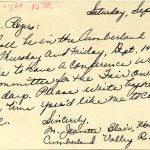 ought 15th
Saturday, Sep
Reyes:
all be in the Cumberland
Thursday and Friday, Sept. 14
to have a Conference w
Committee for the Fair on
days. Please write
time you'd like me to c
Sincerely,
M. Jeanette Blair, Hom
Cumberland Valley R